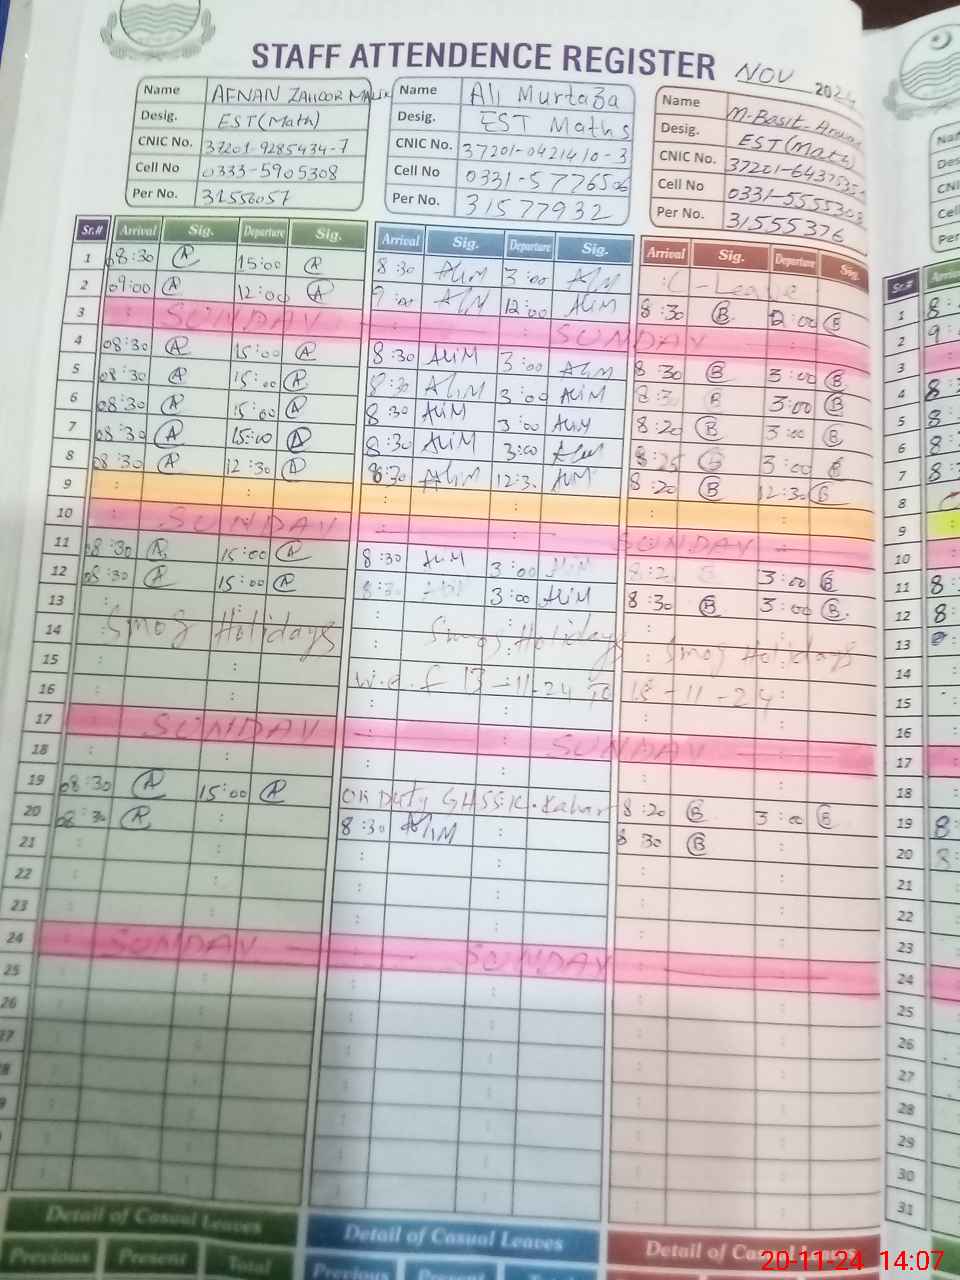 STAFF ATTENDENCE REGISTER NOV 2024
Name AFNAN ZAHOOR MALIK
Desig. EST(Math)
CNIC No. 37201-9285434-7
Cell No 0333-5905308
Per No.
Name Ali Murtaza
Desig. EST Maths
CNIC No. 37201-0421410-3
Cell No 0331-5776506
Per No. 31577932
Name M-Basit-
Desig. EST(Math)
CNIC No.
Cell No
Per No. 31555376
Sr.# Arrival Sig. Departure Sig. Arrival Sig. Departure Sig. Arrival Sig. Departure Sig.
1 08:30 A 15:00 A 8:30 AliM 3:00 AliM C-Leave
2 09:00 A 12:00 A 9:00 AliM 12:00 AliM 8:30 B 12:00 B
3 SUNDAY SUNDAY
4 08:30 A 15:00 A 8:30 AliM 3:00 AliM 8:30 B 3:00 B
5 08:30 A 15:00 A 8:30 AliM 3:00 AliM 8:30 B 3:00 B
6 08:30 A 15:00 A 8:30 AliM 3:00 AliM 8:20 B 3:00 B
7 08:30 A 15:00 A 8:30 AliM 3:00 AliM 8:25 B 3:00 B
8 08:30 A 12:30 A 8:30 AliM 12:30 AliM 8:20 B 12:30 B
9
10 SUNDAY SUNDAY
11 08:30 A 15:00 A 8:30 AliM 3:00 AliM 3:00 B
12 08:30 A 15:00 A 8:30 3:00 AliM 8:30 B 3:00 B
13
14 Smog Holidays Smog Holidays Smog Holidays
15
16 w.e.f 13-11-24 To 18-11-24
17 SUNDAY SUNDAY
18
19 08:30 A 15:00 A On Duty 8:20 B 3:00 B
20 08:30 A 8:30 AliM 8:30 B
21
22
23
24 SUNDAY SUNDAY
25
26
27
Detail of Casual Leaves Detail of Casual Leaves Detail of Casual Leaves
Previous Present Total Previous
Sr.#
1
2
3
4
5
6
7
8
9
10
11
12
13
14
15
16
17
18
19
20
21
22
23
24
25
26
27
28
29
30
31
20-11-24 14:07